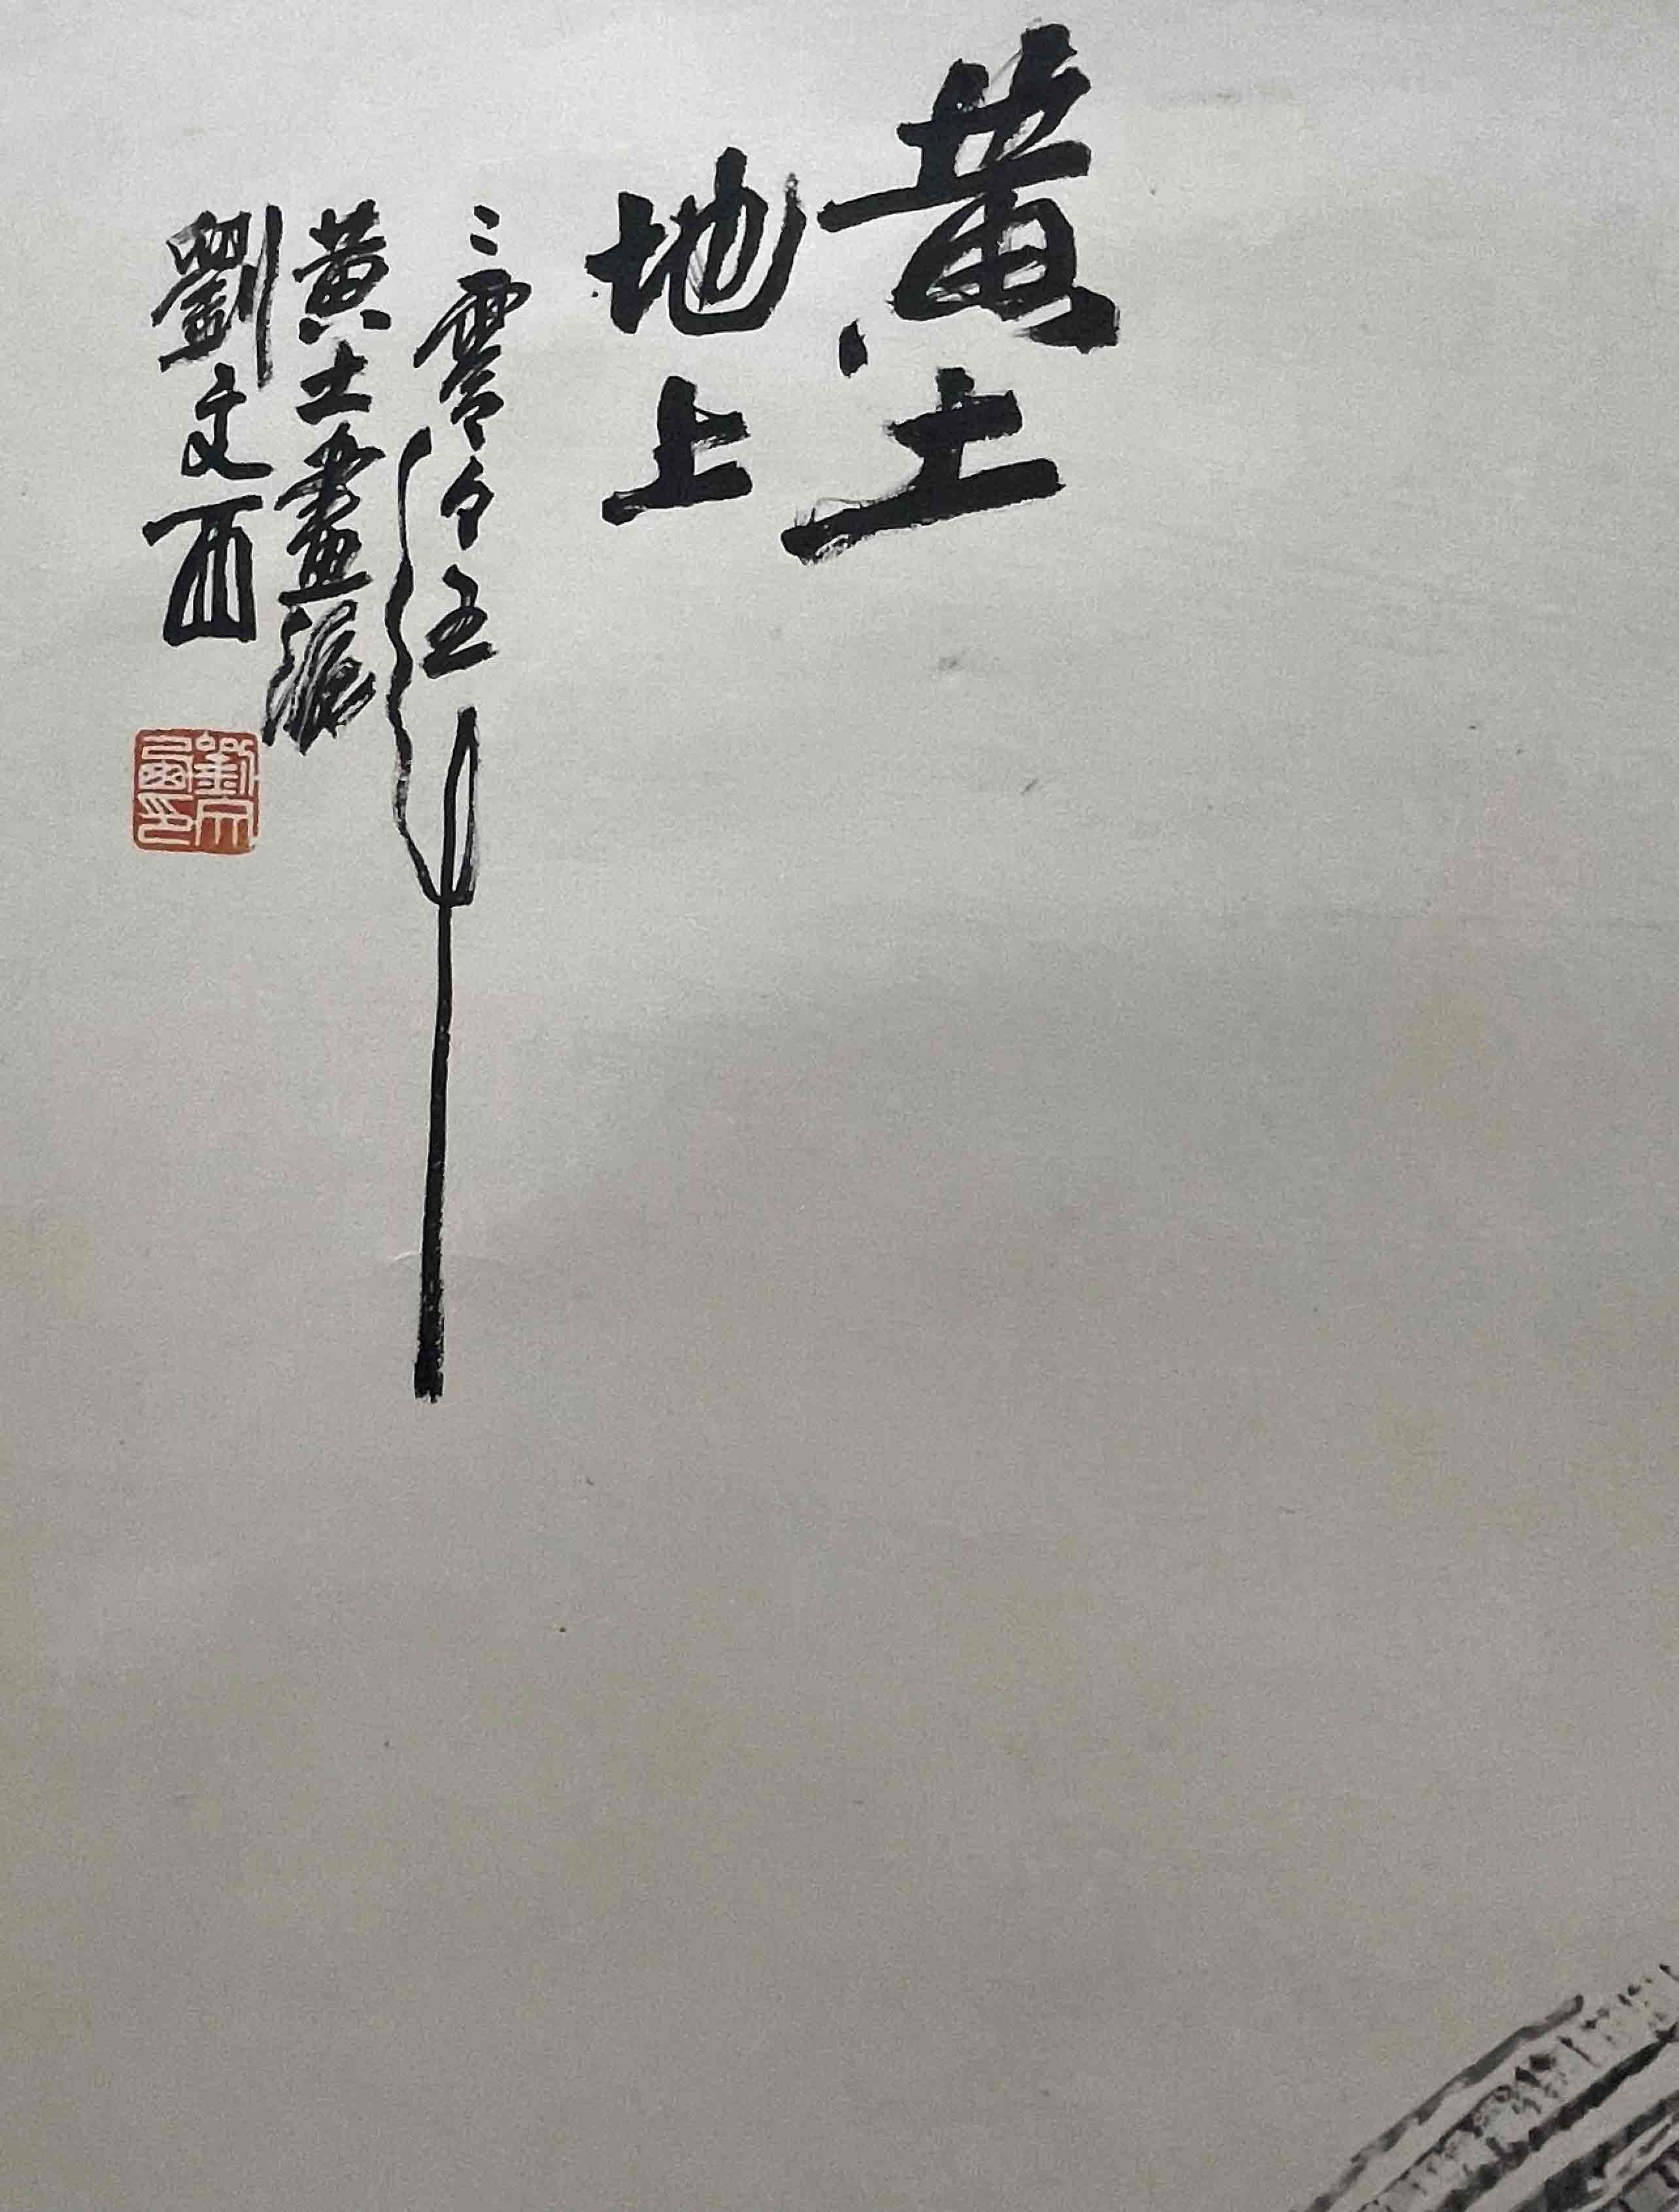 黄土
地上
二零零五年
黄土畫派
劉文西
劉文西印